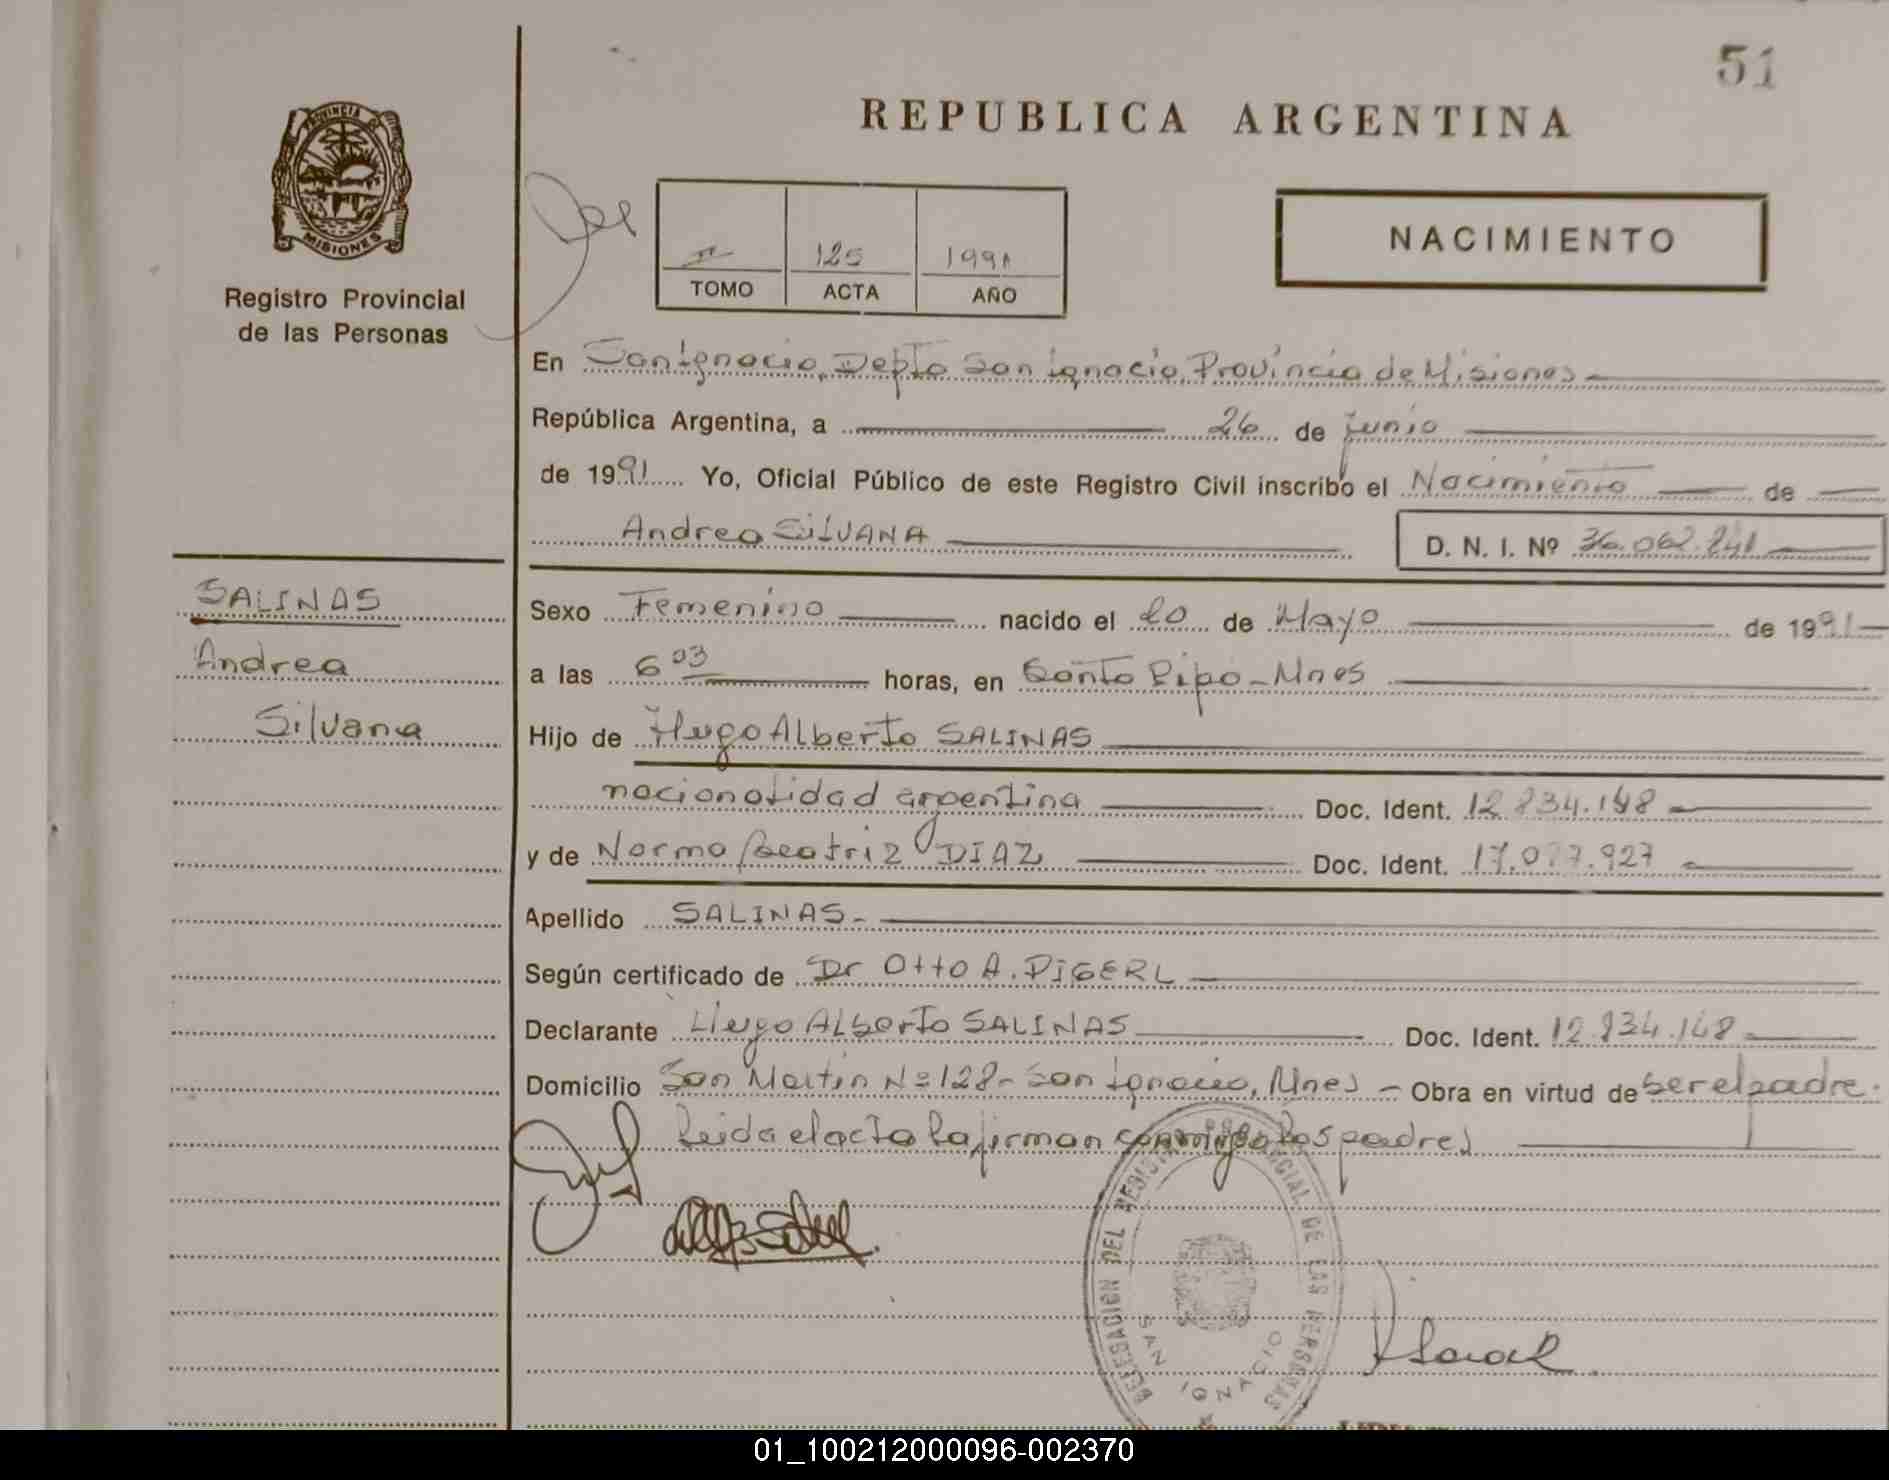 51
REPUBLICA ARGENTINA
PROVINCIA DE
MISIONES
Registro Provincial
de las Personas
125 1991
TOMO ACTA AÑO
NACIMIENTO
En San Ignacio, Depto San Ignacio, Provincia de Misiones
República Argentina, a 26 de junio
de 1991 Yo, Oficial Público de este Registro Civil inscribo el Nacimiento de
Andrea SILVANA D. N. I. Nº
SALINAS
Andrea
Silvana
Sexo Femenino nacido el 20 de Mayo de 1991
a las 6 03 horas, en Santo Pipo - Mnes
Hijo de Hugo Alberto SALINAS
nacionalidad argentina Doc. Ident. 12.834.148
y de Norma Beatriz DIAZ Doc. Ident.
Apellido SALINAS.-
Según certificado de Dr Otto A. DIGERL
Declarante Hugo Alberto SALINAS Doc. Ident. 12.834.148
Domicilio San Martin Nº 128 - San Ignacio, Mnes - Obra en virtud de ser el padre.
Leida el acta la firman conmigo los padres
DELEGACION DEL REGISTRO PROVINCIAL DE LAS PERSONAS
SAN IGNACIO
01_100212000096-002370